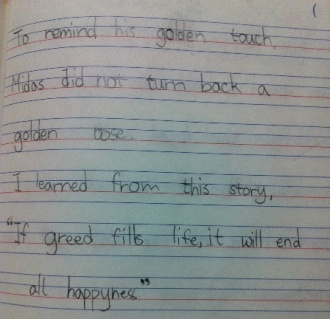 To remind his golden touch,
Midas did not turn back a
golden ose.
I learned from this story,
"If greed fills life, it will end
all happyness"